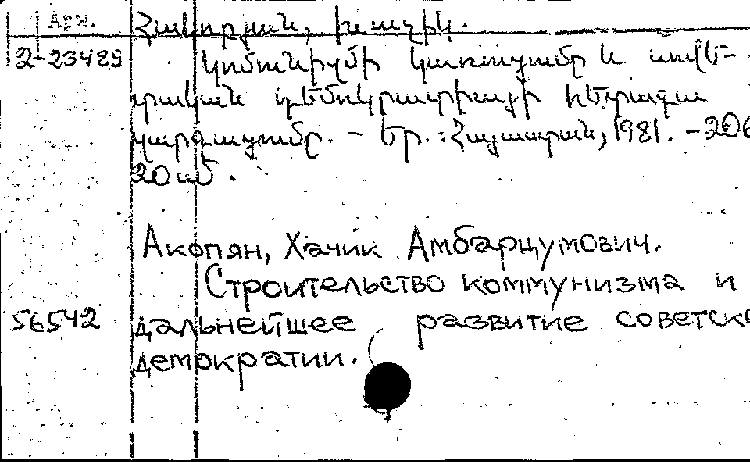 Арм.
Հակոբյան, Խաչիկ.
2-23489
Կոմունիզմի կառուցումը և սովե-
տական դեմոկրատիայի հետագա
զարգացումը. - Եր.: Հայաստան, 1981. - 206
20 սմ.
Акопян, Хачик Амбарцумович.
Строительство коммунизма и
56542
дальнейшее развитие советско
демократии.